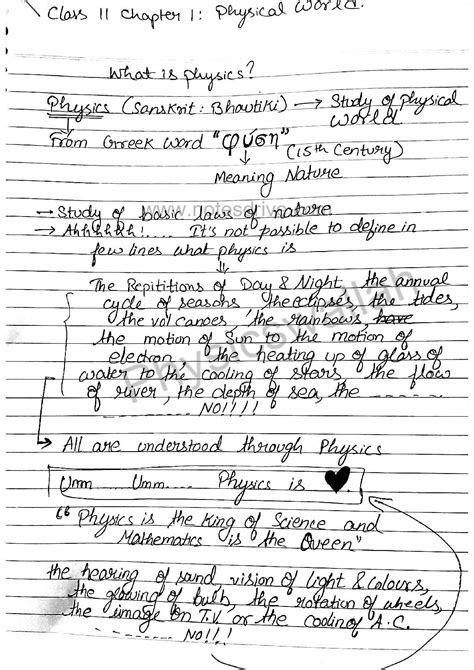 Class 11 Chapter 1: Physical World.
What is physics?
Physics (Sanskrit: Bhautiki) → Study of Physical
World
From Greek word "φύση" (15th Century)
Meaning Nature
www.notesdrive
→ Study of basic laws of nature
→ Ahhhhhh!.... It's not possible to define in
few lines what physics is
The Repititions of Day & Night, the annual
cycle of seasons the eclipses, the tides,
the volcanoes, the rainbows, have
the motion of Sun to the motion of
electron, the heating up of glass of
water to the cooling of stars, the flow
of river, the depth of sea, the -----
------- NO!!!!
Physicswallah
→ All are understood through Physics
Umm.... Umm..... Physics is ♥.
"Physics is the King of Science and
Mathematics is the Queen"
the hearing of sound, vision of light & colours,
the glowing of bulb, the rotation of wheels,
the image on T.V or the cooling of A.C.
-------- NO!!!!